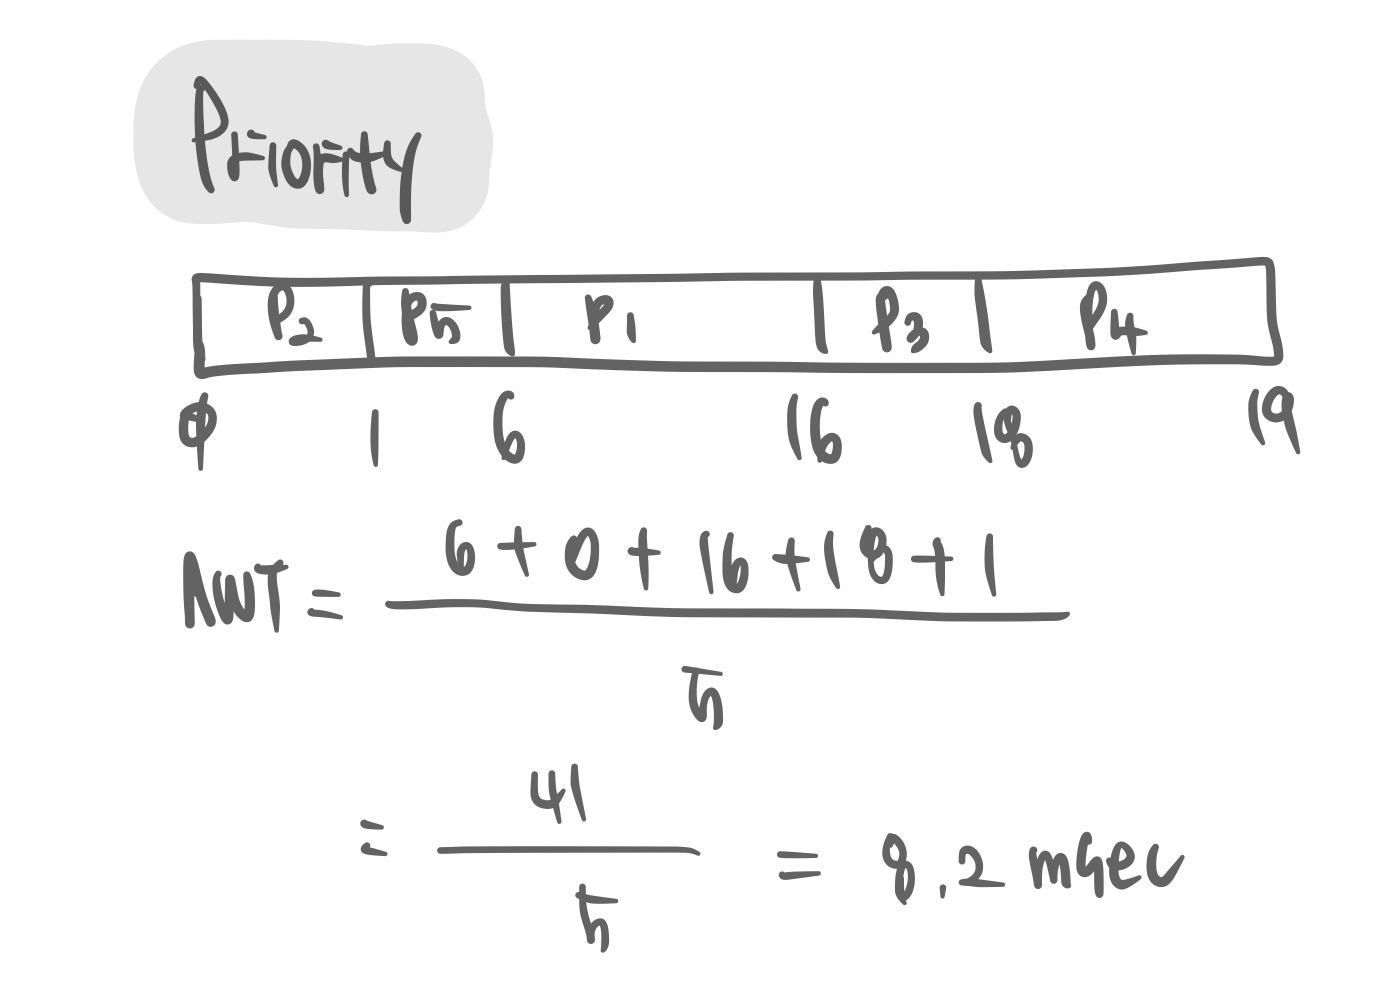 Priority
P2 P5 P1 P3 P4
0 1 6 16 18 19
6 + 0 + 16 + 18 + 1
AWT =
5
41
= = 8.2 msec
5